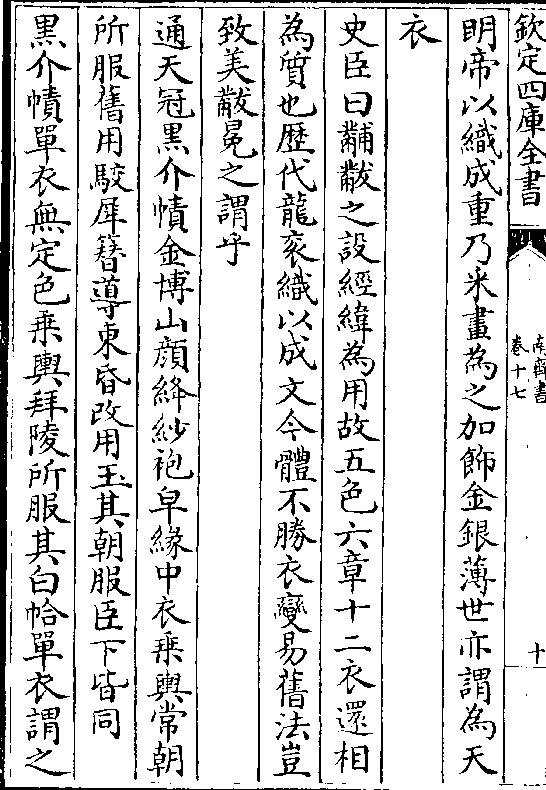 欽定四庫全書
南齊書
卷十七
十
明帝以織成重乃米畫為之加飾金銀薄世亦謂為天
衣
史臣曰黼黻之設經緯為用故五色六章十二衣還相
為質也歴代龍衮織以成文今體不勝衣變易舊法豈
致美黻冕之謂乎
通天冠黒介幘金博山顔絳紗袍皁縁中衣乗輿常朝
所服舊用駮犀簪導東昏改用玉其朝服臣下皆同
黒介幘單衣無定色乗輿拜陵所服其白帢單衣謂之